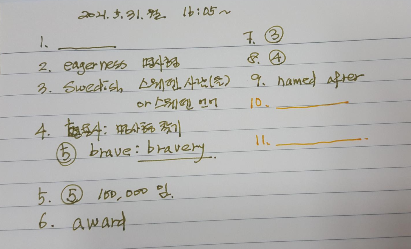 2021. 5. 31. 월 16:05~
1.
2. eagerness 명사형
3. Swedish 스웨덴 사람(들)
or 스웨덴 언어
4. 명사형 찾기
⑤ brave: bravery
5. ⑤ 100,000 임.
6. award
7. ③
8. ④
9. named after
10.
11.